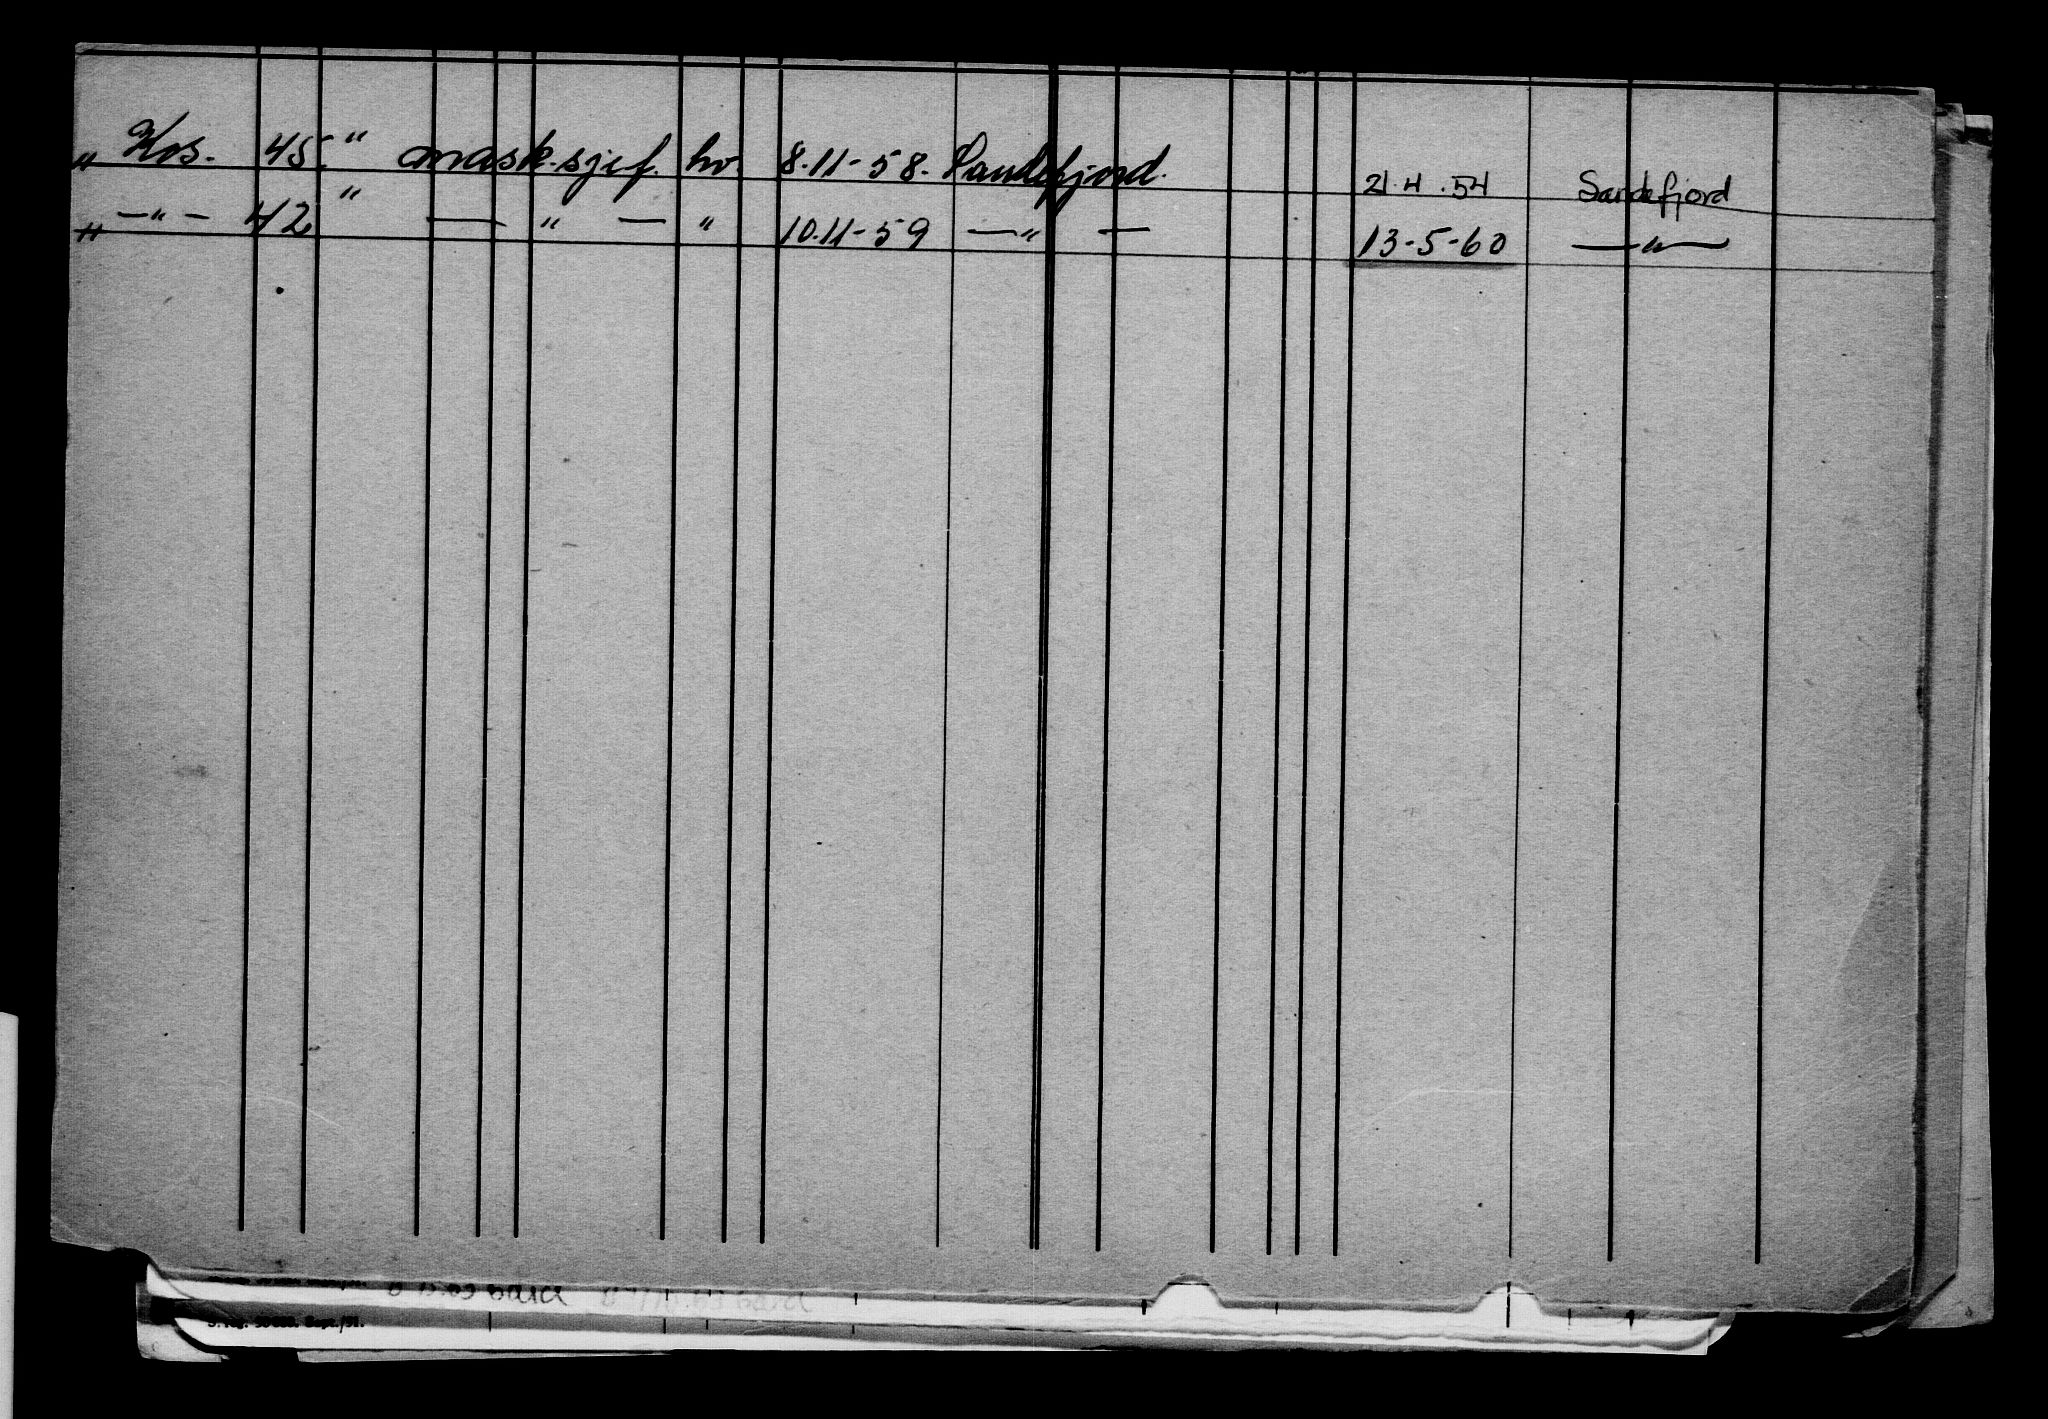 " Kos. 45 " mask.sjef. hv. 8.11-58. Sandefjord. 21.4.54 Sandefjord
" —"— 42 " — " — " 10.11-59 —"— 13-5-60 —"—